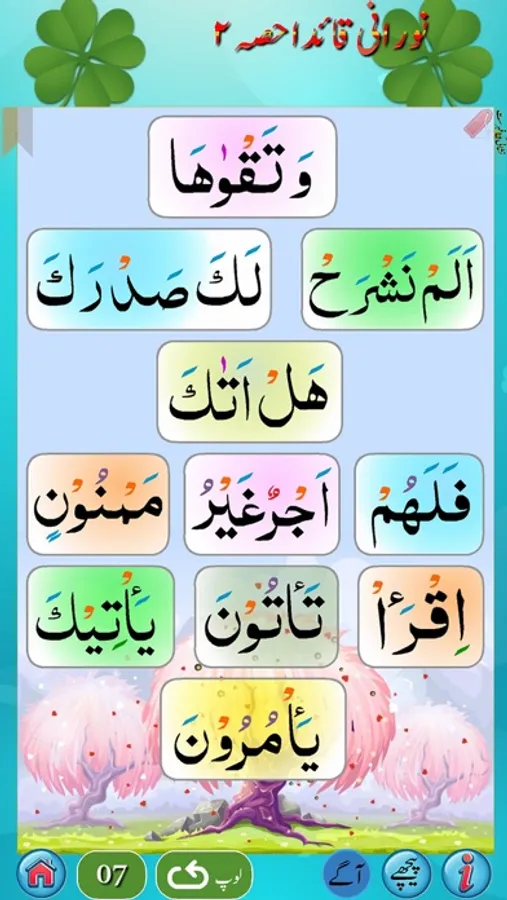 نورانی قائدا حصہ ۲
وَ تَقْوٰهَا
اَلَمْ نَشْرَحْ لَكَ صَدْرَكَ
هَلْ اَتٰىكَ
فَلَهُمْ اَجْرٌ غَيْرُ مَمْنُوْنٍ
اِقْرَاْ تَاْتُوْنَ يَاْتِيْكَ
يَاْمُرُوْنَ
i پیچھے آگے لوپ 07